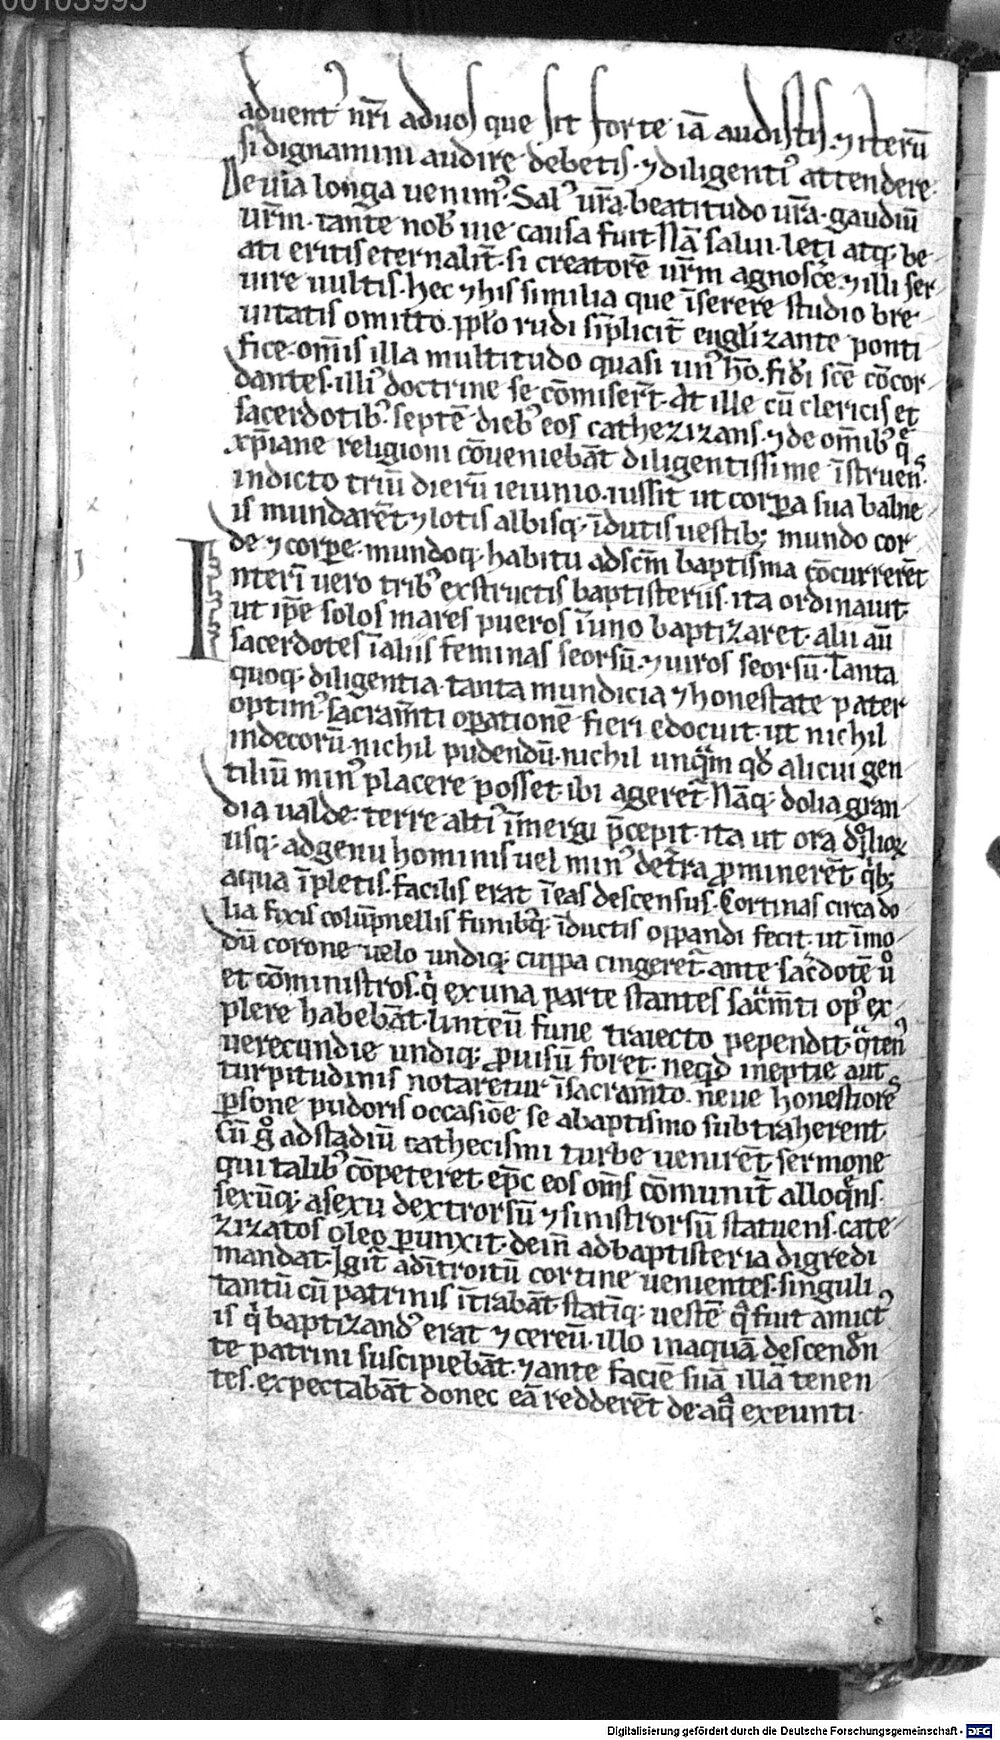 00103995
aduent᷒ nr̄i aduos que sit forte iā audistis. ⁊ iterū
si dignamini audire debetis. ⁊ diligenti᷒ attendere.
De uia longa uenim᷒. Sal᷒ ur̄a. beatitudo ur̄a. gaudiū
ur̄m. tante nob̄ uie causa fuit. Nā salui. leti atq; be-
ati eritis eternalit̄. si creatorē ur̄m agnosc̄e. ⁊ illi ser-
uire uultis. hec ⁊ his similia que īserere studio bre-
uitatis omitto. pp̄lo rudi sīplicit̄ euglizante ponti
fice. om̄is illa multitudo quasi un᷒ hō. fid̄i sc̄e cōcor-
dantes. illi᷒ doctrine se cōmiser̄t. At ille cū clericis et
sacerdotib᷒. septē dieb᷒ eos cathezizans. ⁊ de om̄ib᷒ q̄
xp̄iane religioni cōueniebāt diligentissime īstruens.
indicto triū dierū ieiunio. iussit ut corꝑa sua balne
is mundarēt ⁊ lotis albisq; īdutis uestib; mundo cor-
de ⁊ corꝑe. mundoq; habitu adsc̄m baptisma cōcurrerēt
Interī uero trib᷒ exstructis baptisteriis. ita ordinauit
ut ip̄e solos mares pueros ī uno baptizaret. alii aū
sacerdotes ī aliis feminas seorsū. ⁊ uiros seorsū. Tanta
quoq; diligentia. tanta mundicia ⁊ honestate pater
optim᷒. sacram̄ti oꝑationē fieri edocuit. ut nichil
indecorū. nichil pudendū. nichil unq̄m qd̄ alicui gen-
tiliū min᷒ placere posset ibi ageret᷑. Nāq; dolia gran-
dia ualde. terre alti᷒ īmergi p̄cepit. ita ut ora dolioꝝ
usq; adgenu hominis uel min᷒ det̄ra ꝓminerēt. qͥb;
aqua īpletis. facilis erat ī eas descensus. Cortinas circa do-
lia fixis colūpnellis funib᷒q; īductis oppandi fecit. ut ī mo-
dū corone uelo undiq; cuppa cingeret᷑. ante sac̄dotē ů
et cōministros. qͥ ex una parte stantes sac̄m̄ti op᷒ ex-
plere habebāt. linteū fune traiecto pependit. qͣten᷒
uerecundie undiq; ꝓuisū foret. neqͥd ineptie aut
turpitudinis notaretur ī sacram̄to. neue honestiores
ꝑsone pudoris occasiōe se abaptismo subtraherent.
Cū gͦ ad stadiū cathecismi turbe uenirēt. sermone
qui talib᷒ cōpeteret. ep̄c eos om̄s cōmunit̄ alloqͣns.
sexūq; asexu dextrorsū ⁊ sinistrorsū statuens. cate-
zizatos oleo ꝑunxit. dein̄ ad baptisteria digredi
mandat. Igit̄ ad ītroitū cortine uenientes. singuli
tantū cū patrinis ītrabāt. statīq; uestē qͣ fuit amict᷒
is qͥ baptizand᷒ erat ⁊ cereū. illo in aquā descendn̄
te patrini suscipiebāt. ⁊ ante faciē suā illā tenen
tes. expectabāt donec eā redderēt de aqͣ exeunti.
Digitalisierung gefördert durch die Deutsche Forschungsgemeinschaft - DFG